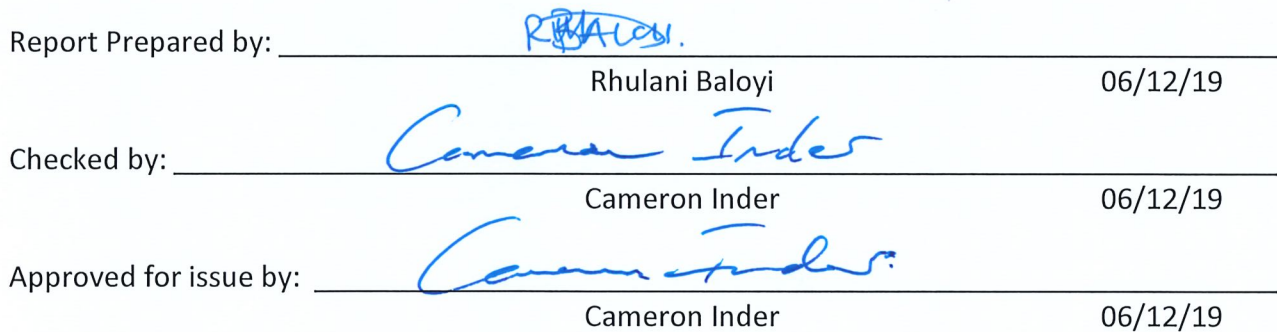 Report Prepared by: RBALOYI.
Rhulani Baloyi 06/12/19
Checked by: Cameron Inder
Cameron Inder 06/12/19
Approved for issue by: Cameron Inder
Cameron Inder 06/12/19